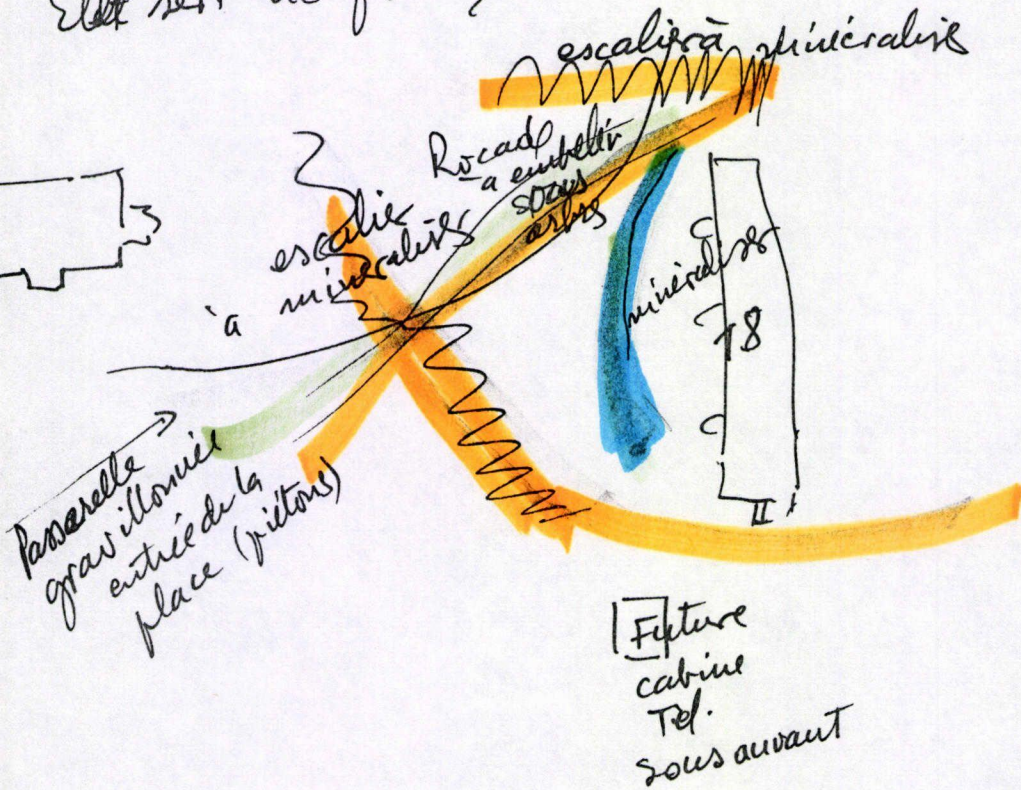 escalier à minéraliser
Rocade
à embellir
sous
arbres
escalier
à minéraliser
minéraliser
78
Passerelle
gravillonnée
entrée de la
place (piétons)
II
Future
cabine
Tél.
sous auvant